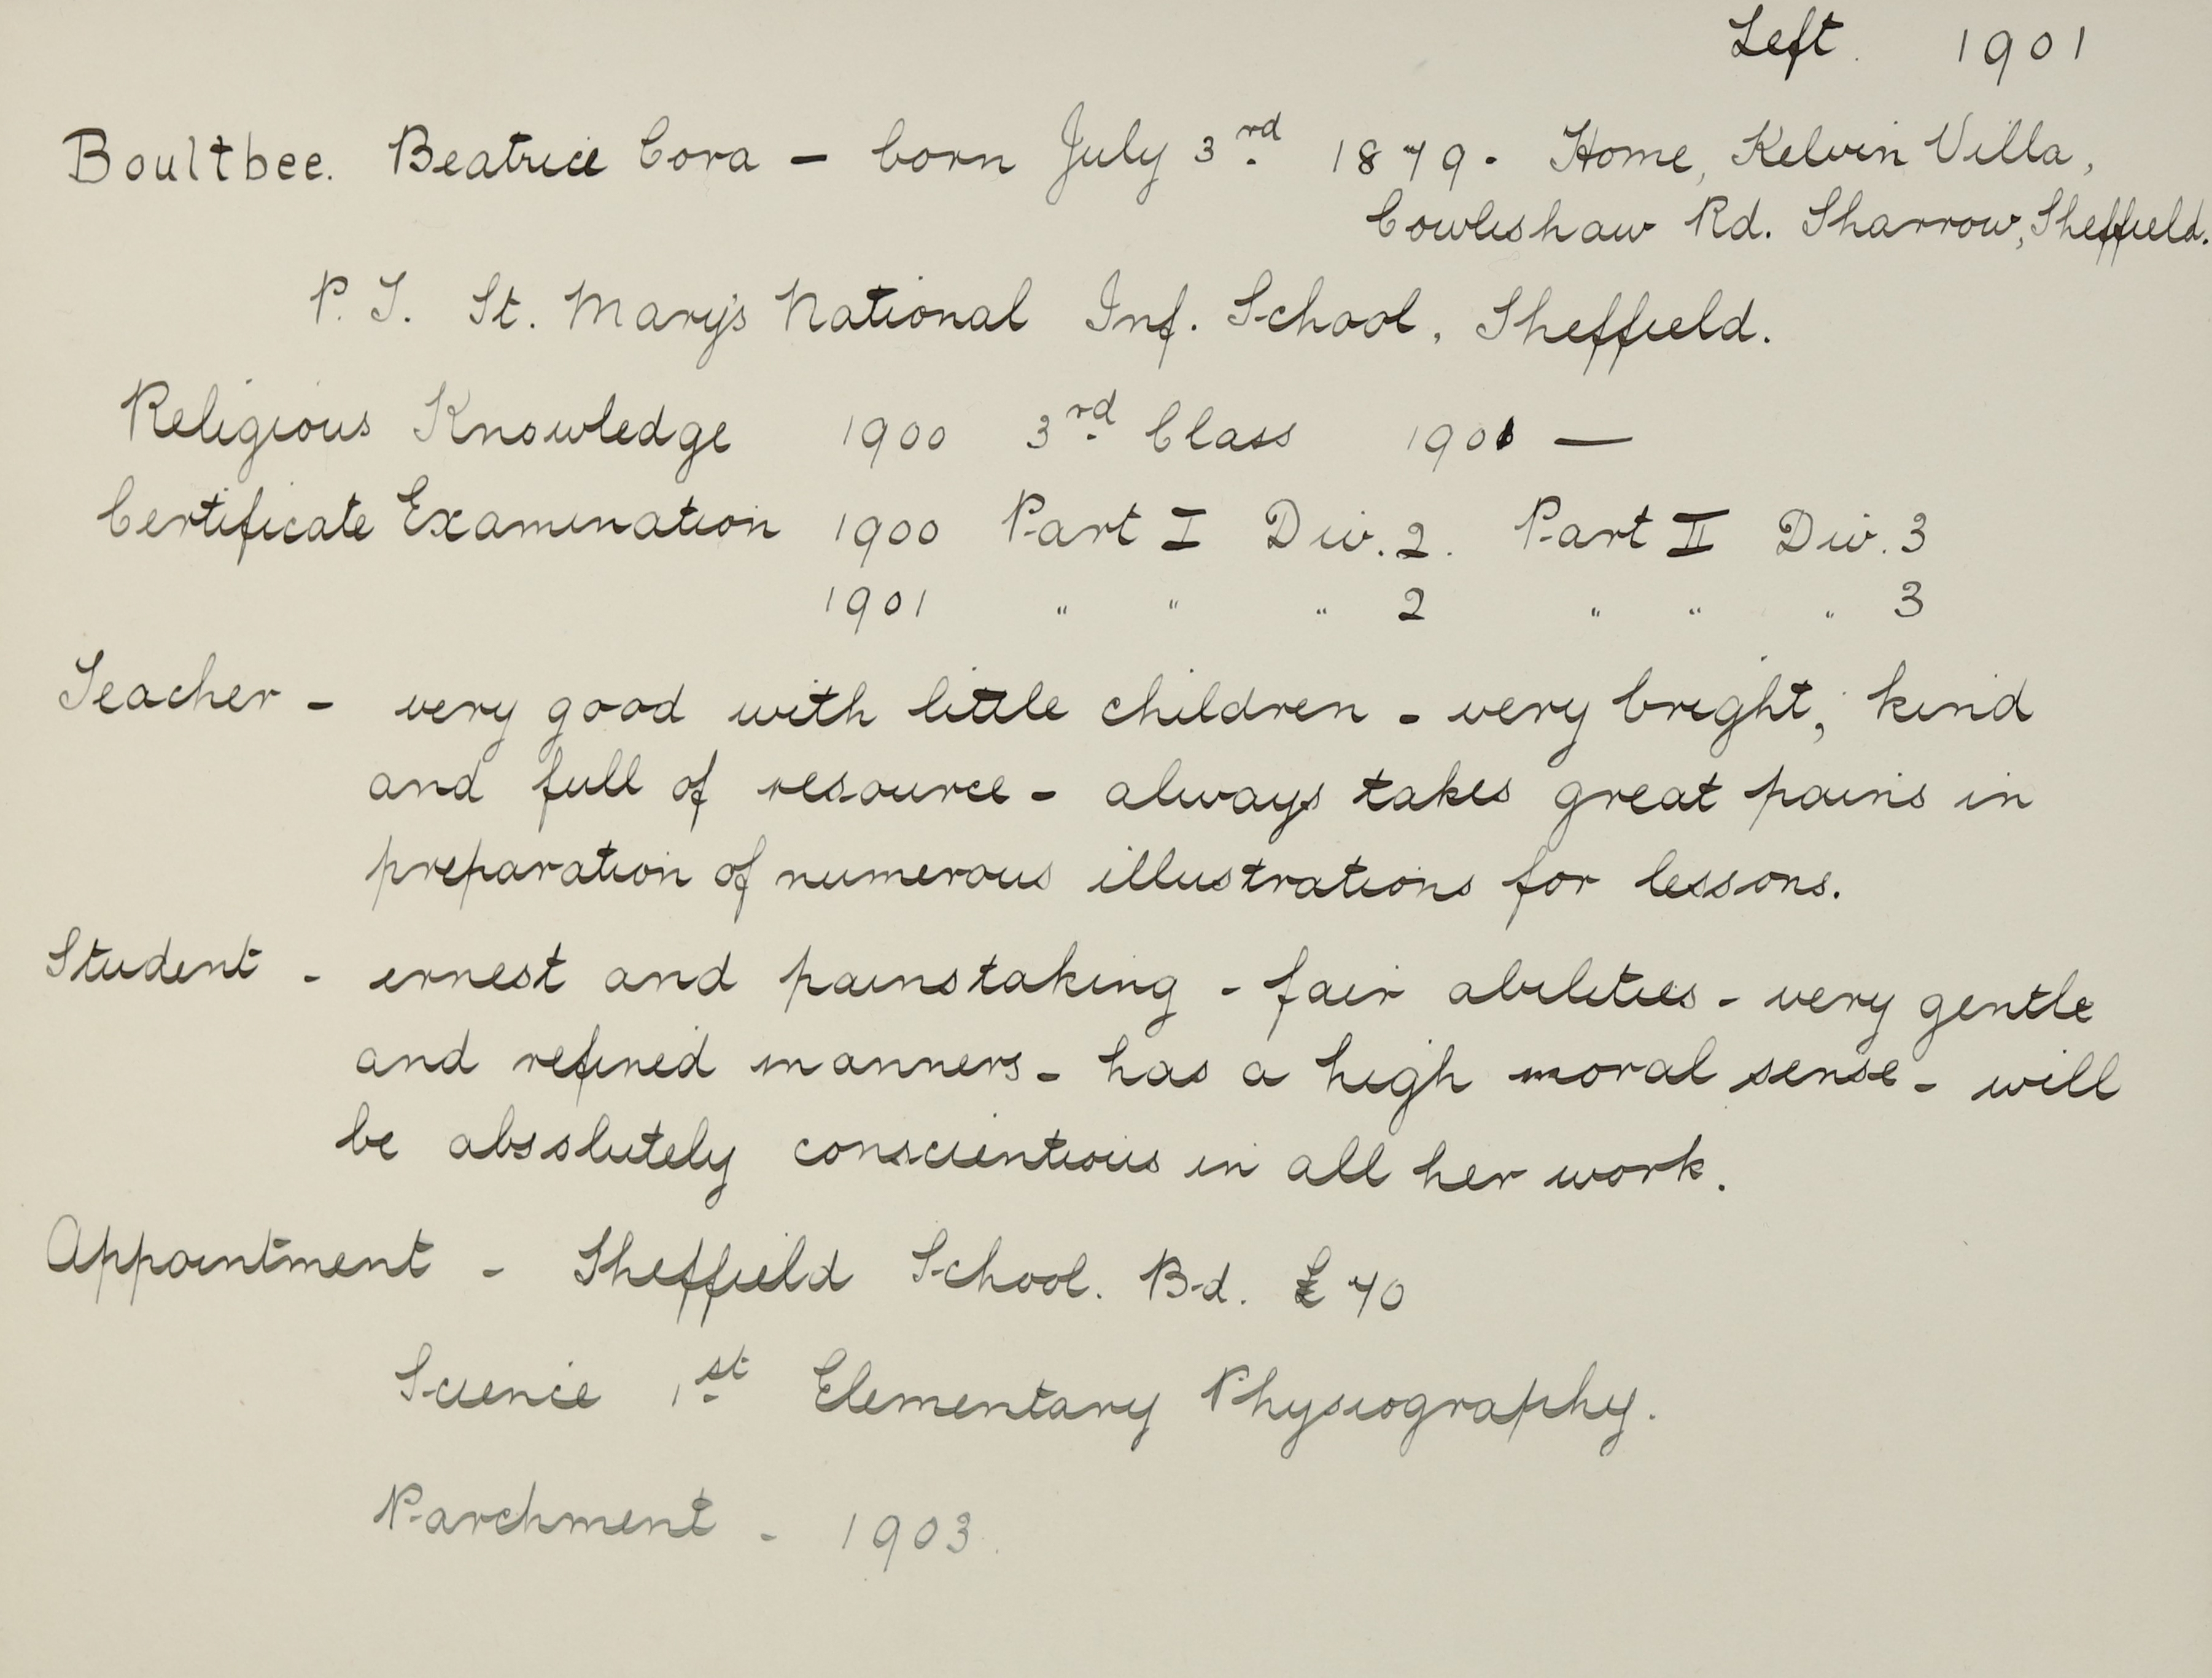 Left. 1901
Boultbee. Beatrice Cora — born July 3rd. 1879. Home, Kelvin Villa,
Cowlishaw Rd. Sharrow, Sheffield.
P. T. St. Mary's National Inf. School, Sheffield.
Religious Knowledge 1900 3rd Class 1901 —
Certificate Examination 1900 Part I Div. 2. Part II Div. 3
1901 " " " 2 " " " 3
Teacher - very good with little children - very bright, kind
and full of resource - always takes great pains in
preparation of numerous illustrations for lessons.
Student - ernest and painstaking - fair abilities - very gentle
and refined manners - has a high moral sense - will
be absolutely conscientious in all her work.
Appointment - Sheffield School. Bd. £70
Science 1st Elementary Physiography.
Parchment - 1903.